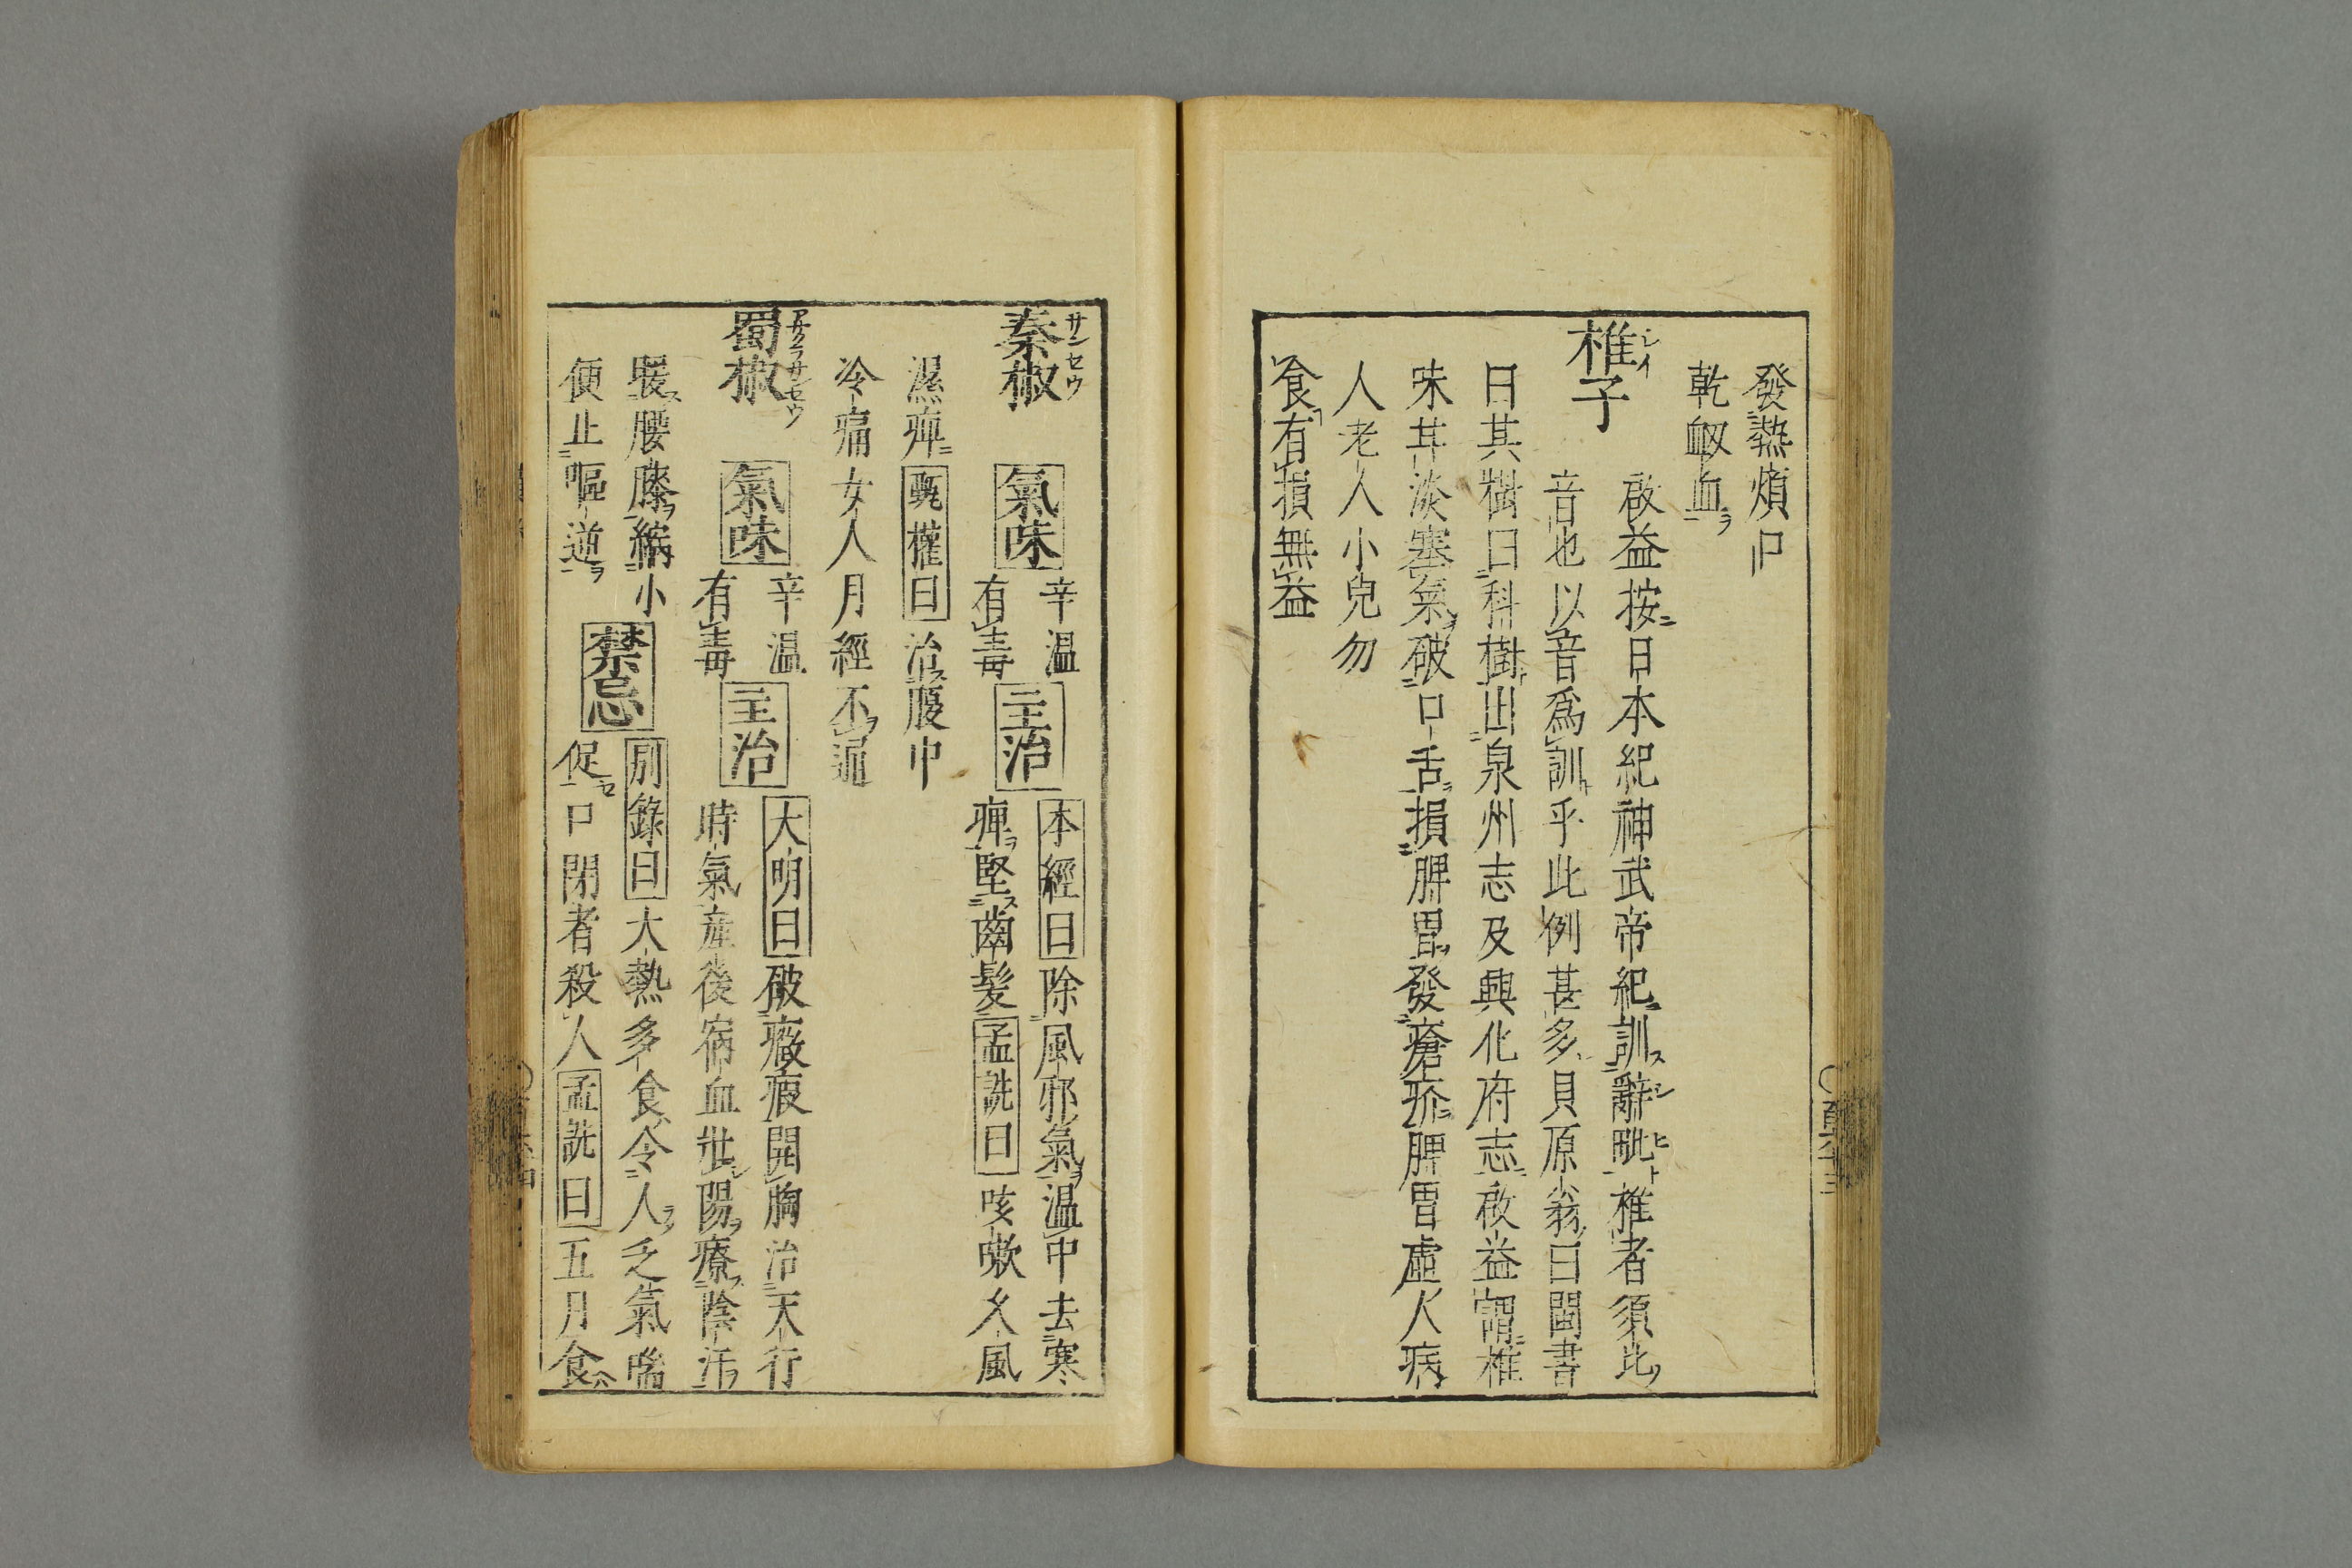 發熱煩口
乾衂血
椎子
啟益按日本紀神武帝紀訓辭毗椎者須比
音也以音爲訓乎此例甚多貝原翁曰閩書
曰其樹曰科樹出泉州志及興化府志啟益謂椎
味苷淡塞氣破口舌損脾胃發瘡疥脾胃虛人病
人老人小兒勿
食有損無益
秦椒 サンセウ
氣味 辛温
有毒
主治 本經曰除風邪氣温中去寒
痺堅齒髮孟詵曰咳嗽久風
濕痺甄權曰治腹中
冷痛女人月經不通
蜀椒 アサクラサンセウ
氣味 辛温
有毒
主治 大明曰破癥瘕開胸治天行
時氣產後宿血壯陽療陰汗
暖腰膝縮小
便止嘔逆
禁忌 別錄曰大熱多食令人乏氣喘
促口閉者殺人孟詵曰五月食